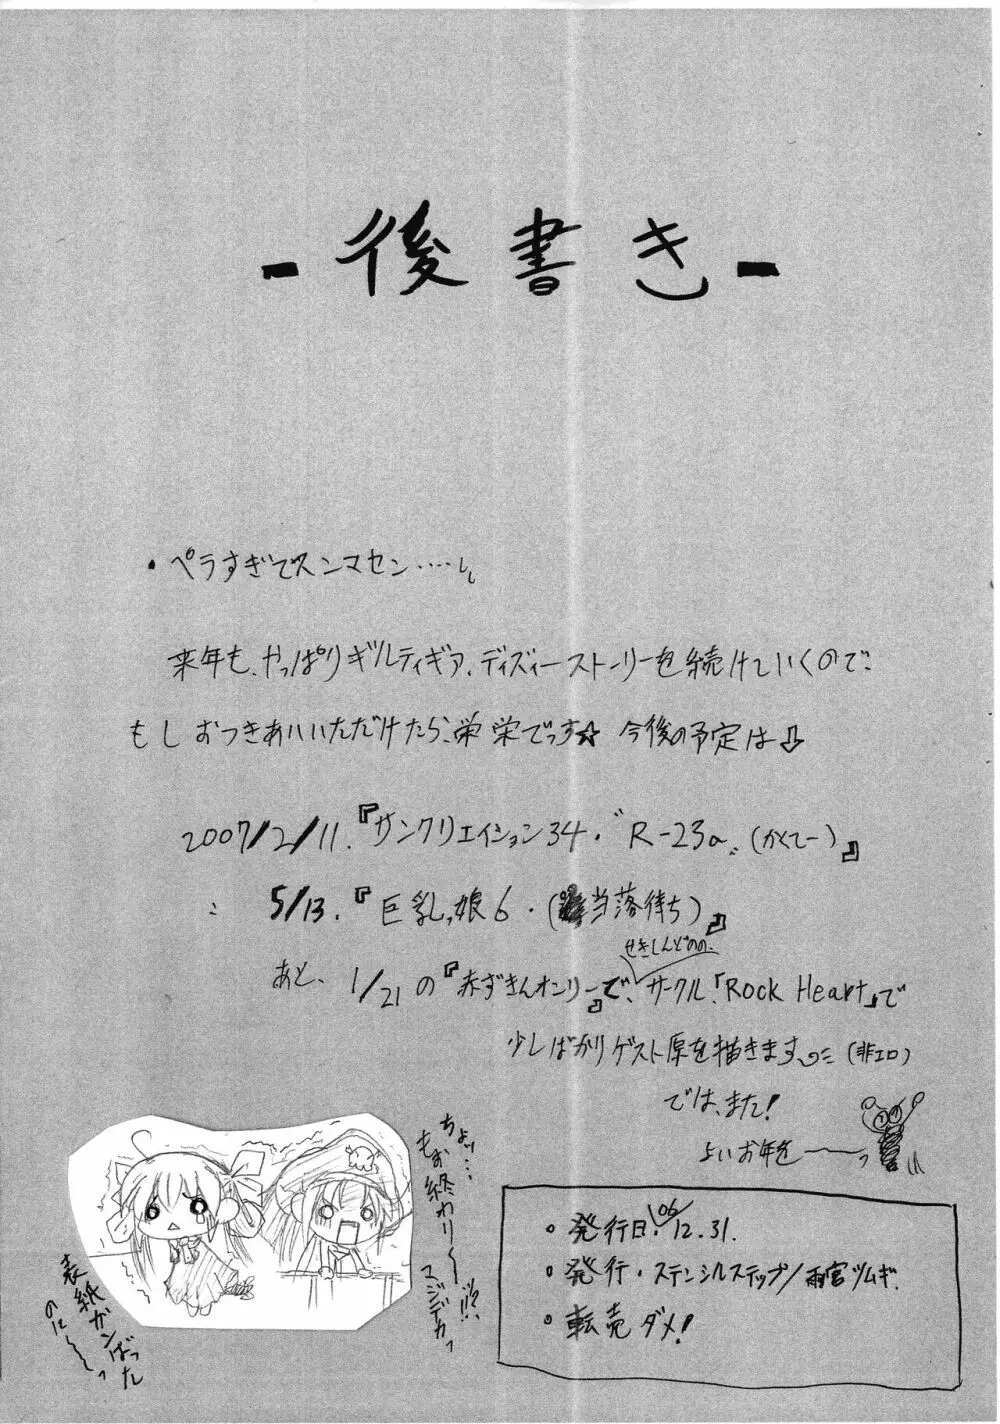 - 後書き -
・ペラすぎでスンマセン……し
来年も、やっぱりギルティギア、ディズィーストーリーを続けていくので、
もしおつきあいいただけたら、栄栄でっす☆ 今後の予定は⇩
2007/2/11.『サンクリエイション34・"R-23a"(かくてー)』
〃 5/13.『巨乳っ娘6・(当落待ち)』
せきしんどのの、
あと、1/21の『赤ずきんオンリー』で、サークル、「Rock Heart」で
少しばかりゲスト原を描きます (非エロ)
では、また!
よいお年を〜〜っ
ちょッ…
もぉ終わり〜〜ッ!?!!
マジデカっ
表紙がんばった
のに〜〜〜っ
・発行日.'06/12.31.
・発行・ステンシルステップ/雨宮ツムギ
・転売ダメ!